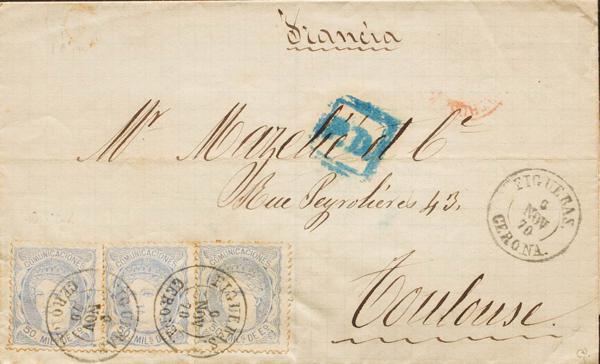 Francia
P.D.
Mr Mazelié et Cᵉ
Rue Peyrolières 43.
Toulouse.
FIGUERAS
6
NOV
70
GERONA.
COMUNICACIONES
50 MILS DE ES
COMUNICACIONES
50 MILS DE ES
COMUNICACIONES
50 MILS DE ES
FIGUERAS
6
NOV
70
GERONA
FIGUERAS
6
NOV
70
GERONA